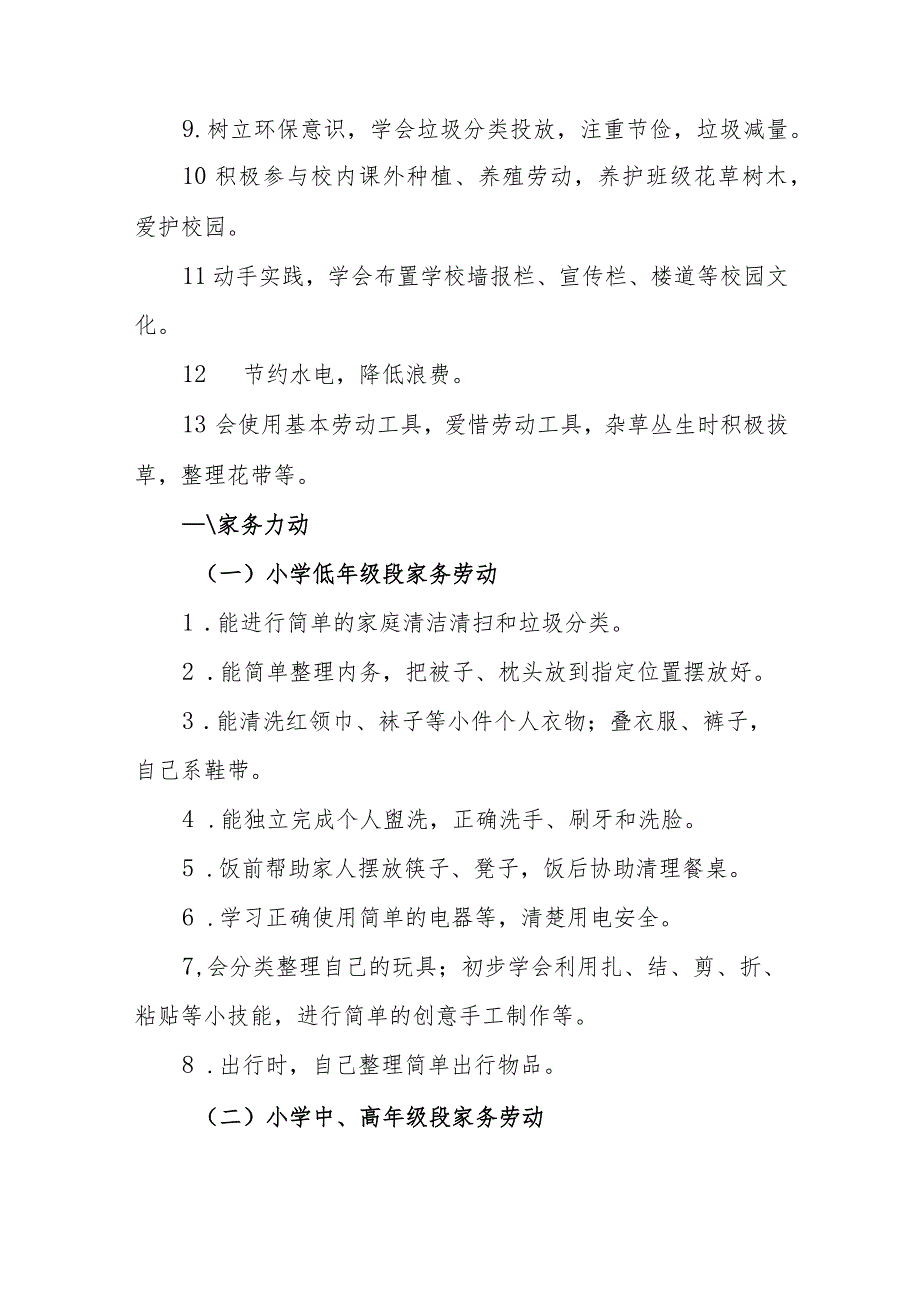 9.树立环保意识，学会垃圾分类投放，注重节俭，垃圾减量。
10 积极参与校内课外种植、养殖劳动，养护班级花草树木，
爱护校园。
11动手实践，学会布置学校墙报栏、宣传栏、楼道等校园文
化。
12 节约水电，降低浪费。
13 会使用基本劳动工具，爱惜劳动工具，杂草丛生时积极拔
草，整理花带等。
—\家务力动
（一）小学低年级段家务劳动
1 .能进行简单的家庭清洁清扫和垃圾分类。
2 .能简单整理内务，把被子、枕头放到指定位置摆放好。
3 .能清洗红领巾、袜子等小件个人衣物；叠衣服、裤子，
自己系鞋带。
4 .能独立完成个人盥洗，正确洗手、刷牙和洗脸。
5 .饭前帮助家人摆放筷子、凳子，饭后协助清理餐桌。
6 .学习正确使用简单的电器等，清楚用电安全。
7,会分类整理自己的玩具；初步学会利用扎、结、剪、折、
粘贴等小技能，进行简单的创意手工制作等。
8 .出行时，自己整理简单出行物品。
（二）小学中、高年级段家务劳动